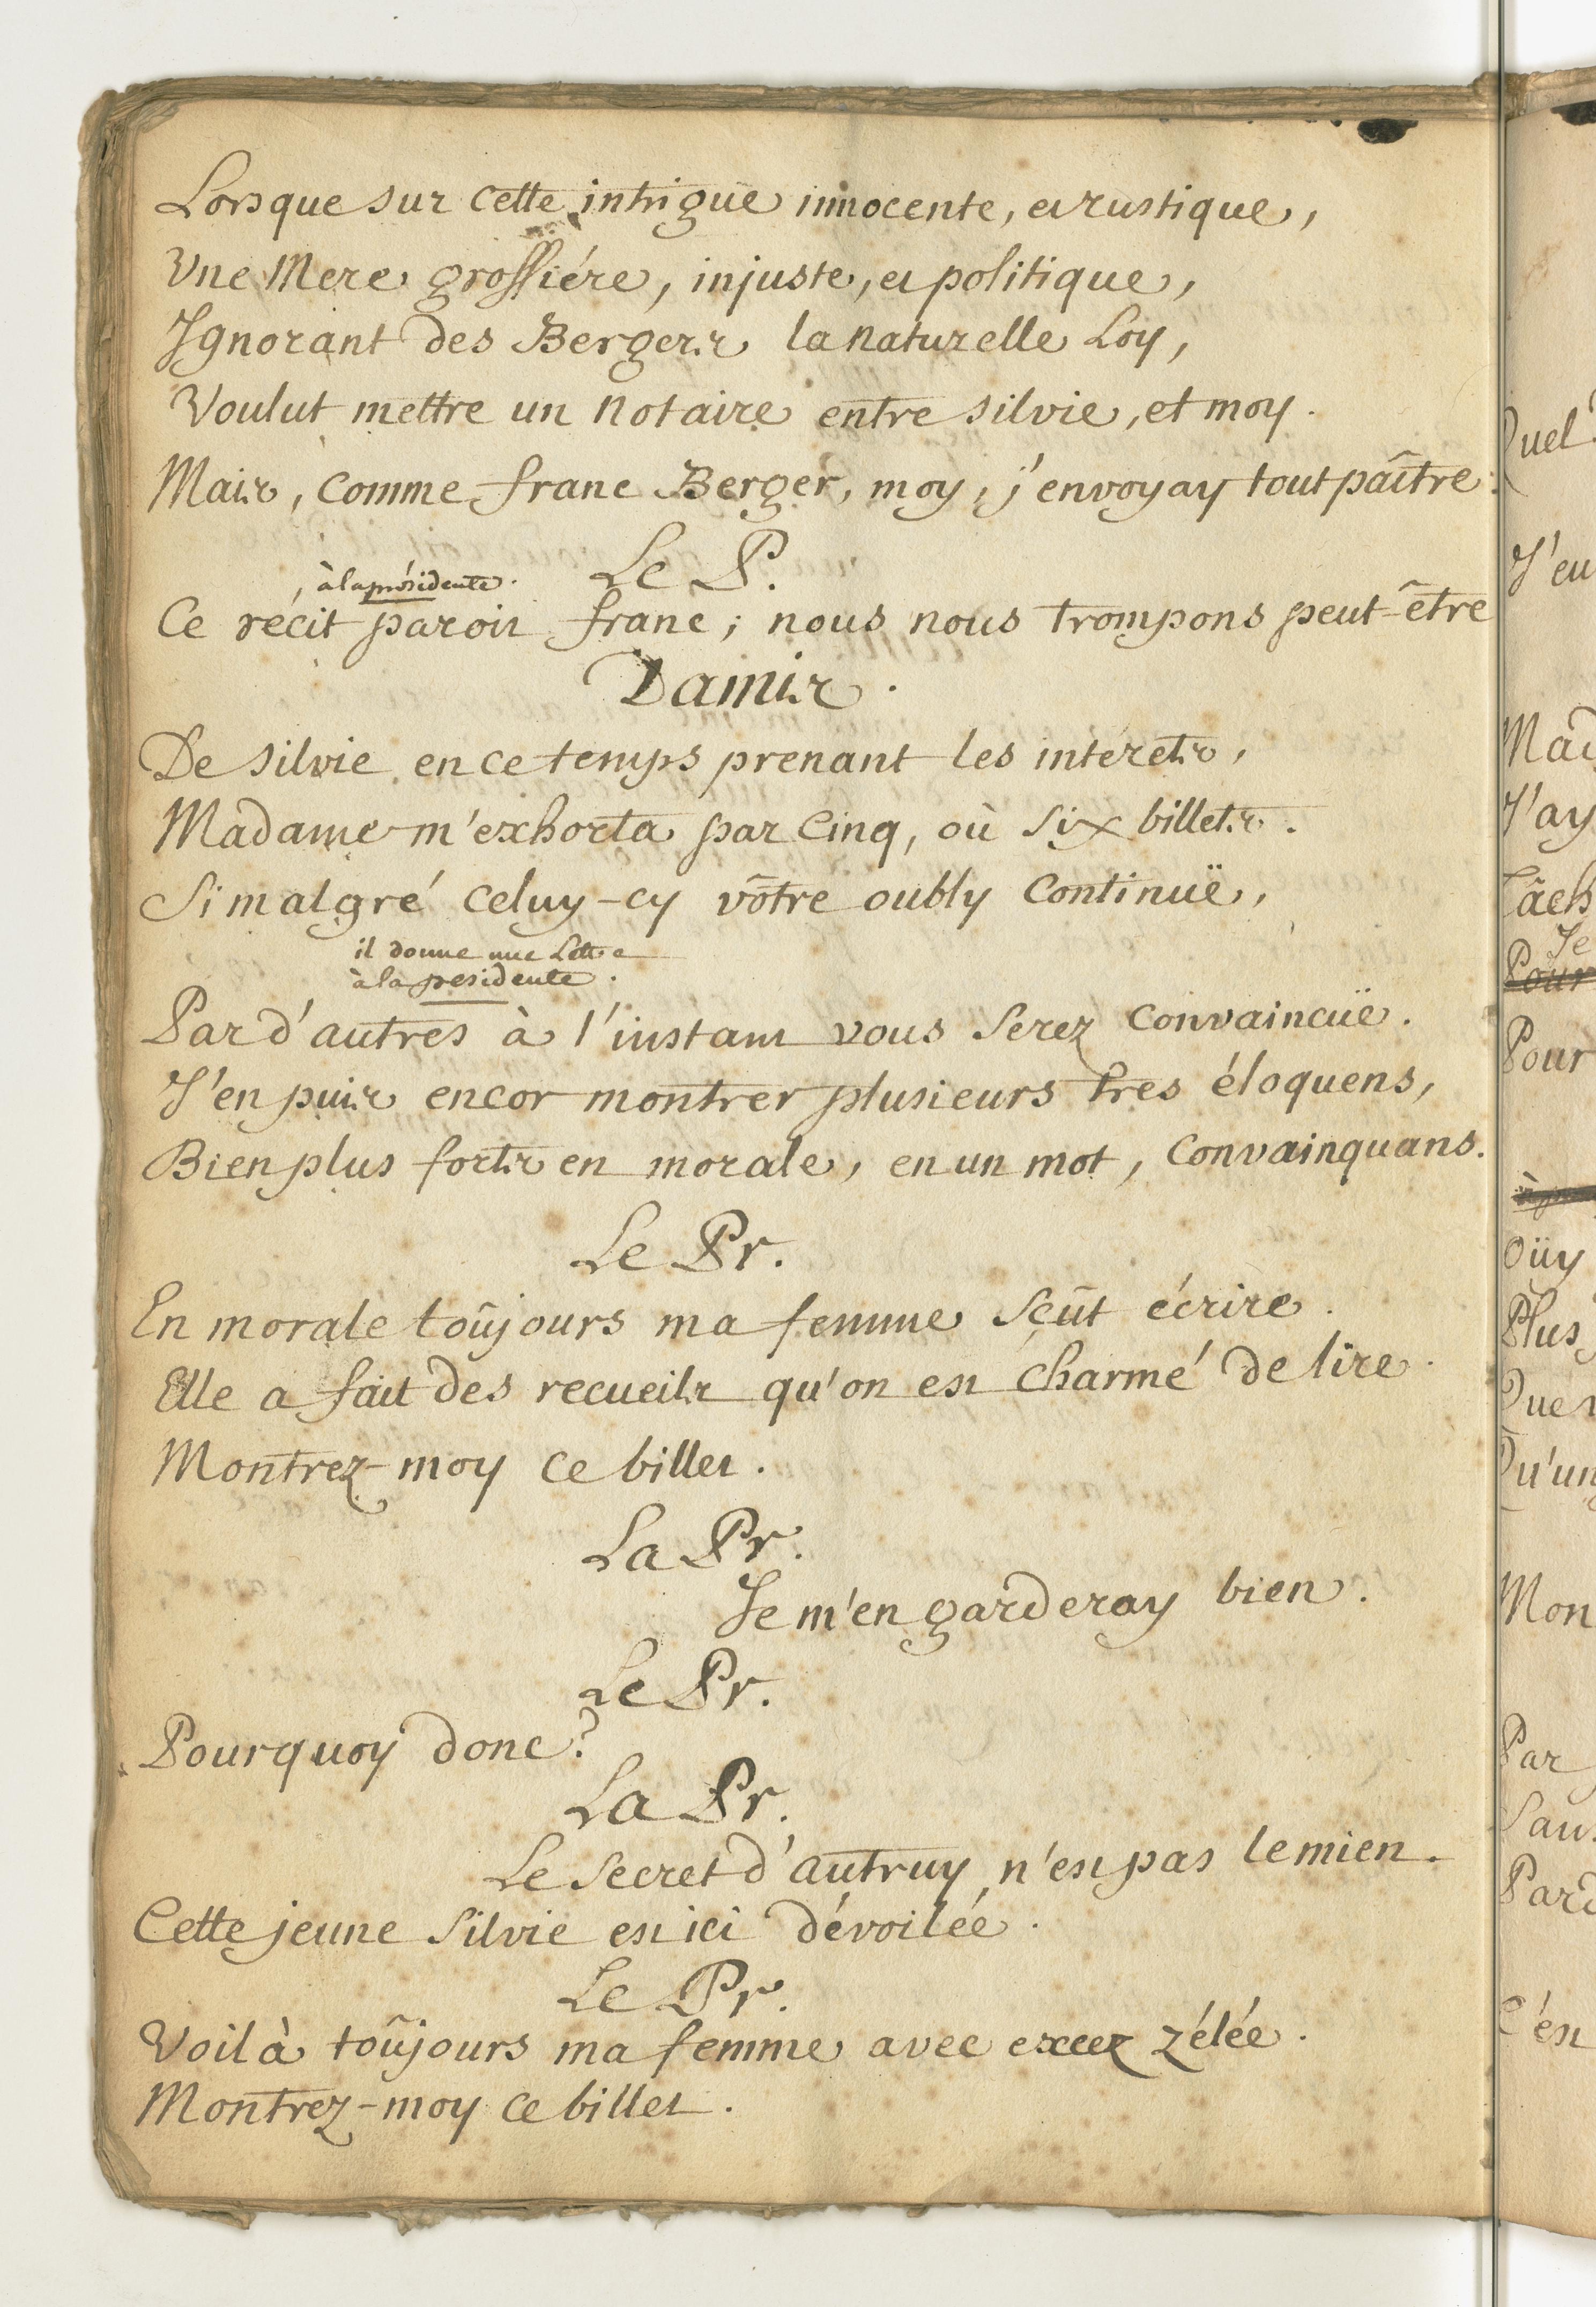 Lorsque sur cette intrigüe innocente, et rustique,
Une Mere grossiére, injuste, et politique,
Ignorant des Bergers la naturelle Loy,
Voulut mettre un Notaire entre silvie, et moy.
Mais, comme franc Berger, moy, j'envoyay tout paître.
Le P.
, à la présidente.
Ce récit paroit franc; nous nous trompons peut-être
Damis.
De silvie en ce temps prenant les interets,
Madame m'exhorta par Cinq, où Six billets.
Si malgré celuy-cy vôtre oubly continuë,
il donne une Lettre
à la presidente.
Par d'autres à l'instant vous Serez convaincüe.
J'en puis encor montrer plusieurs tres éloquens,
Bien plus forts en morale, en un mot, Convainquans.
Le Pr.
En morale toûjours ma femme Sçût écrire.
Elle a fait des recueils qu'on est charmé de lire.
Montrez-moy ce billet.
La Pr.
Je m'en garderay bien.
Le Pr.
Pourquoy donc?
La Pr.
Le Secret d'autruy n'est pas le mien.
Cette jeune Silvie est ici dévoilée.
Le Pr.
Voilà toûjours ma femme avec excez zélée.
Montrez-moy ce billet.
Quel
J'eu
Mad
J'ay
Tâch
Je
Pour
Pour
Oüy
Plus
Que
Qu'un
Mon
Par
Par
C'est